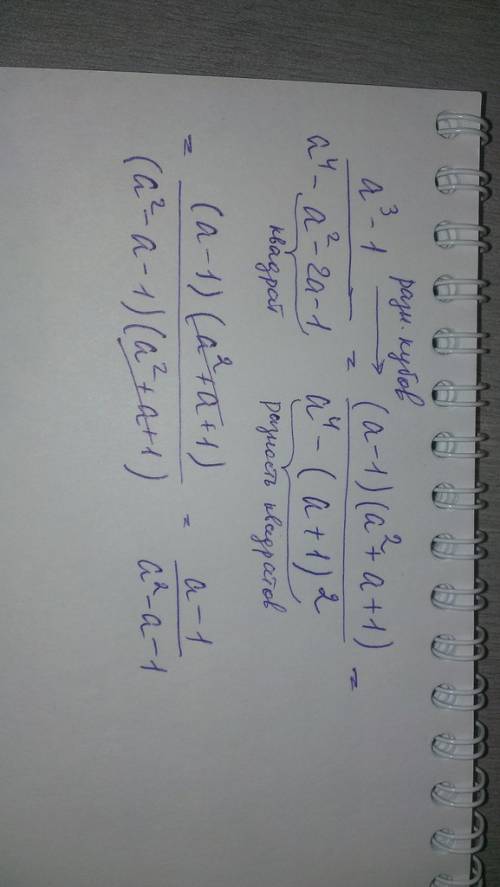 разн. кубов
a³ - 1 / a⁴ - a² - 2a - 1 = (a-1)(a²+a+1) / a⁴ - (a+1)² =
квадрат разность квадратов
= (a-1)(a²+a+1) / (a²-a-1)(a²+a+1) = a-1 / a²-a-1